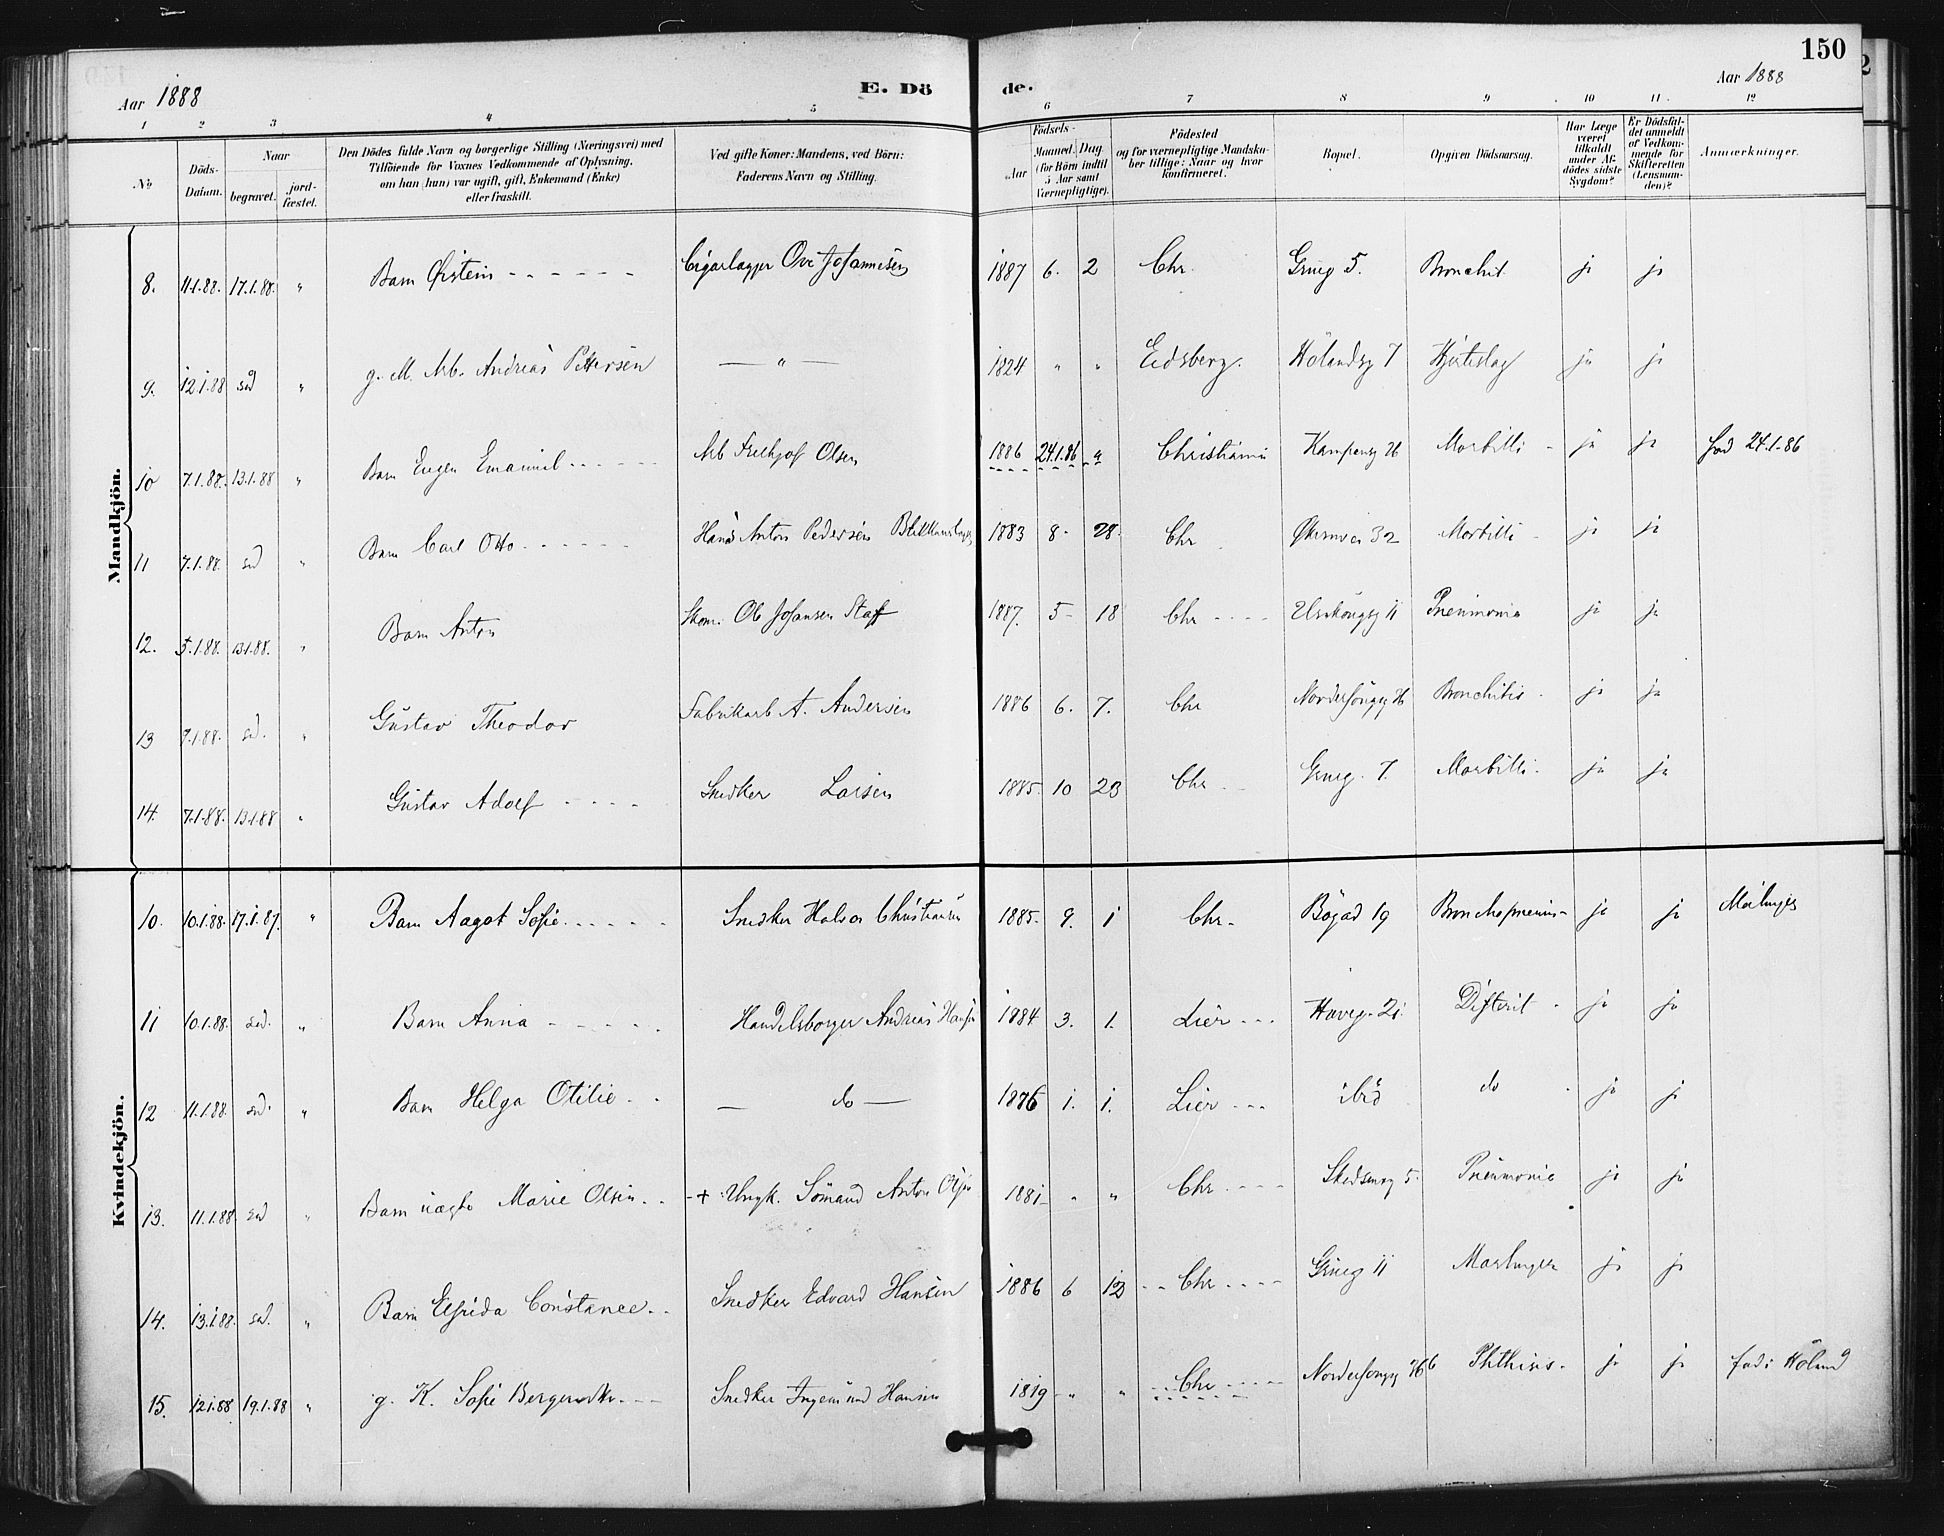 150
Aar 1888 E. Dö de. Aar 1888
1 2 3 4 5 6 7 8 9 10 11 12
No
Döds-Datum.
Naar
begravet. jord-fæstet.
Den Dödes fulde Navn og borgerlige Stilling (Næringsvei) med Tilföiende for Voxnes Vedkommende af Oplysning, om han (hun) var ugift, gift, Enkemand (Enke) eller fraskilt.
Ved gifte Koner: Mandens, ved Börn: Faderens Navn og Stilling.
Födsels-
Aar Maaned. Dag.
(for Börn indtil 5 Aar samt Værnepligtige).
Födested og for værnepligtige Mandska-ber tillige: Naar og hvor konfirmeret.
Bopæl.
Opgiven Dödsaarsag.
Har Læge været tilkaldt under Af-dödes sidste Sygdom?
Er Dödsfal-det anmeldt af Vedkom-mende for Skifteretten (Lensman-den)?
Anmærkninger.
Mandkjön.
8. 11.1.88. 17.1.88. " Barn Øistein Ove Johannesen 1887 6. 2 Chr. Grueg 5. Bronchit ja ja
9. 12.1.88 sad " g. M. Arb. Andreas Pettersen — " — 1824 " " Eidsberg. Hölandsg 7 Hjerteslag ja ja
10 7.1.88. 13.1.88 " Barn Eugen Emanuel Arb Olsen 1886 24.1.86 " Christiania Kampeng Morbilli - ja ja fød 24.1-86
11 7.1.88. sad " Barn Carl Otto Hans Anton Pedersen 1883 8. 28. Chr Økernvei 32 Morbilli - ja ja
12. 5.1.88. 13.1.88. " Barn Anton Skom. Ole Johansen Staff 1887. 5 18 Chr 11 Pneumonia ja ja
13 sad. " Gustav Theodor Fabrikarb A. Andersen 1886 6. 7. Chr Bronchitis - ja ja
14. 7.1.88. 13.1.88 " Gustav Adolf Snedker Larsen 1885. 10 23 Chr Grueg. 7. Morbilli - ja ja
Kvindekjön.
10. 10.1.88. 17.1.87. " Barn Aagot Sofie Snedker Halvor Christiansen 1885. 9. 1 Chr. Bögad 19 ja ja
11 10.1.88. sad. " Barn Anna Handelsborger Andreas 1884 3. 1. Lier Haveg. 21. Difterit - ja ja
12 11.1.88. sad. " Barn Helga Otilie — do — 1876 1. 1. Lier ibid do ja ja
13. 11.1.88 sad " Barn uægte Marie Olsen + Ungk. Sömand Anton 1881 " " Chr 5. Pneumonia ja ja
14. 13.1.88. sad. " Barn Elfrida Constance Snedker Edvard Hansen 1886 6 13 Chr Grueg 11 ja ja
15. 12.1.88 19.1.88 " g. K. Sofie Snedker Ingemund Hansen 1819 " " Chr Phthisis. ja ja fød i Höland